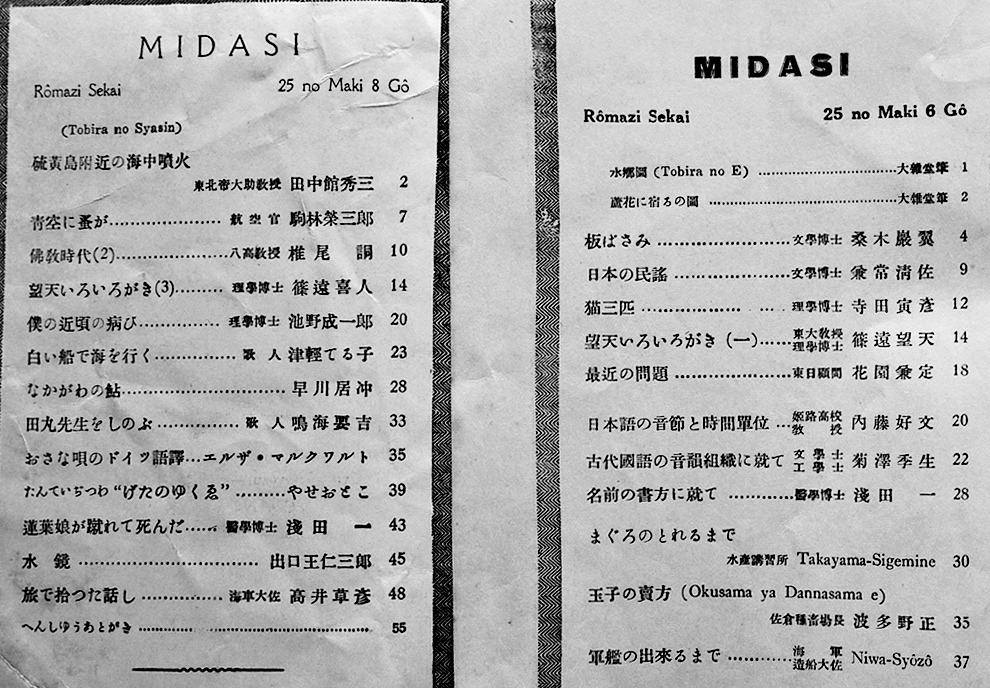 MIDASI
Rômazi Sekai 25 no Maki 8 Gô
(Tobira no Syasin)
硫黄島附近の海中噴火
東北帝大助敎授 田中館秀三 2
靑空に蚤が 航空官 駒林榮三郎 7
佛敎時代(2) 八高敎授 椎尾詞 10
望天いろいろがき(3) 理學博士 篠遠喜人 14
僕の近頃の病ひ 理學博士 池野成一郎 20
白い船で海を行く 歌人 津輕てる子 23
なかがわの鮎 早川居冲 28
田丸先生をしのぶ 歌人 鳴海要吉 33
おさな唄のドイツ語譯 エルザ・マルクワルト 35
たんていぢつわ “げたのゆくゑ” やせおとこ 39
蓮葉娘が蹴れて死んだ 醫學博士 淺田一 43
水鏡 出口王仁三郎 45
旅で拾つた話し 海軍大佐 高井草彥 48
へんしゆうあとがき 55
MIDASI
Rômazi Sekai 25 no Maki 6 Gô
水鄕圖 (Tobira no E) 大雜堂筆 1
蘆花に宿るの圖 大雜堂筆 2
板ばさみ 文學博士 桑木嚴翼 4
日本の民謠 文學博士 兼常淸佐 9
猫三匹 理學博士 寺田寅彥 12
望天いろいろがき (一) 東大敎授 理學博士 篠遠望天 14
最近の問題 東日顧問 花園兼定 18
日本語の音節と時間單位 姬路高校敎授 內藤好文 20
古代國語の音韻組織に就て 文學士 工學士 菊澤季生 22
名前の書方に就て 醫學博士 淺田一 28
まぐろのとれるまで
水產講習所 Takayama-Sigemine 30
玉子の賣方 (Okusama ya Dannasama e)
佐倉種畜場長 波多野正 35
軍艦の出來るまで 海軍造船大佐 Niwa-Syôzô 37